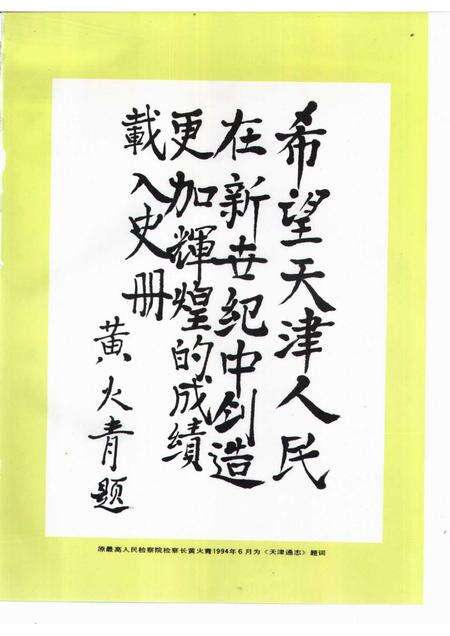 希望天津人民
在新世纪中创造
更加輝煌的成績
載入史册
黄火青题
原最高人民检察院检察长黄火青1994年6月为《天津通志》题词